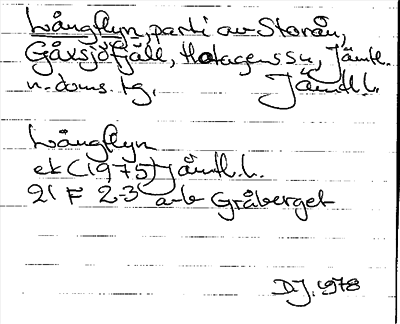 Långflyn, parti av Storån,
Gåxsjöfjäll, Hotagens sn, Jämtl.
n. doms. tg, Jämtl. l.
Långflyn
ek (1975) Jämtl. l.
21 F 2-3 a-b Gråberget
D.J. 1978